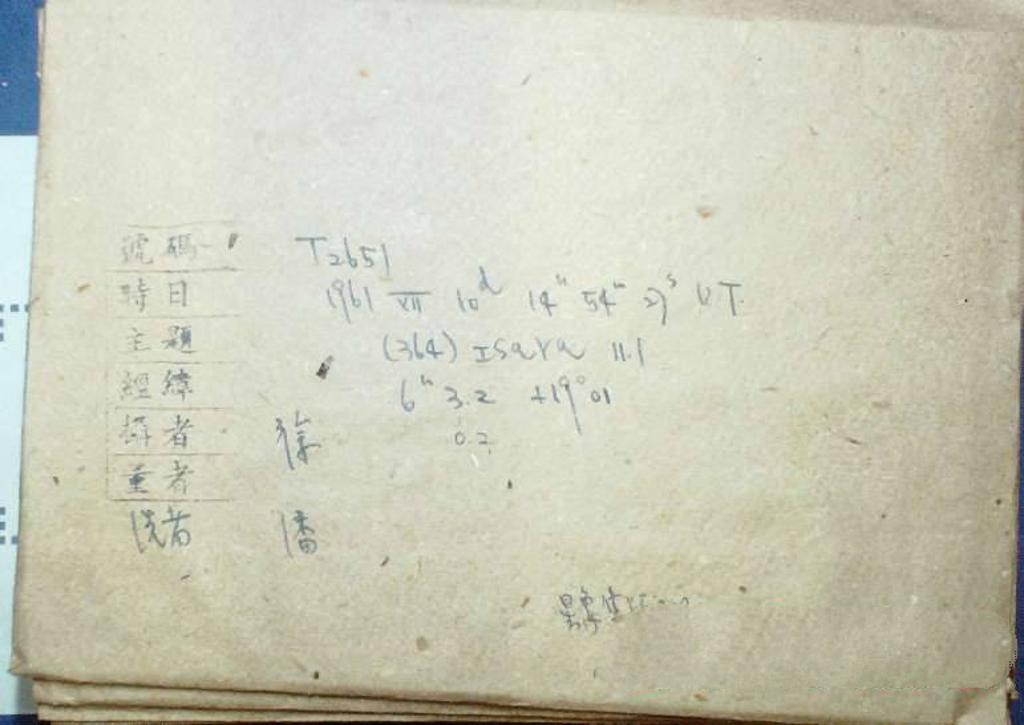 號碼 T2651
時日 1961 XII 10d 14h 54m 27s U.T.
主題 (364) Isara 11.1
經緯 6h 3.2 +19° 01
攝者 徐 0.2
重者
洗者 潘